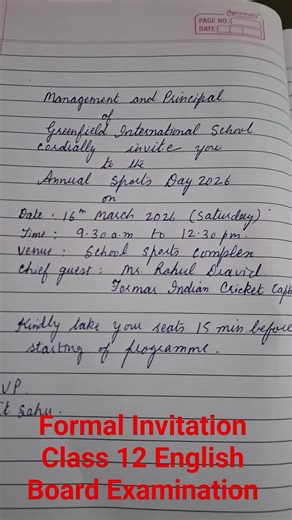 PAGE NO.
DATE:
Management and Principal
of
Greenfield International School
cordially invite you
to the
Annual Sports Day 2026
on
Date: 16th March 2026 (Saturday)
Time: 9.30 a.m to 12.30 pm.
Venue: School Sports Complex
Chief guest: Mr. Rahul Dravid
Former Indian Cricket Cap
Kindly take your seats 15 min before
starting of programme.
VP
Sahu.
Formal Invitation
Class 12 English
Board Examination